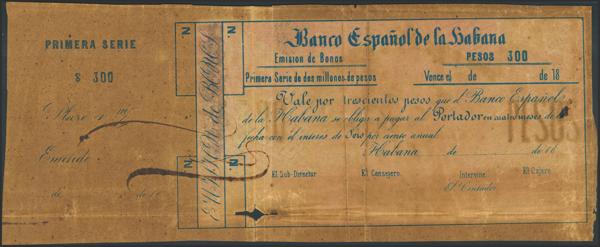 PRIMERA SERIE
$ 300
Plazo
Emitido
de de
N.
N.
N.
N.
Banco Español de la Habana
Emision de Bonos
PESOS 300
Primera Serie de dos millones de pesos
Vence el de de 18
Vale por trescientos pesos que el Banco Español
de la Habana se obliga a pagar al Portador en cuatro meses de la
fecha con el interes de Seis por ciento anual
Habana de de 18
El Sub-Director
El Consejero
Intervine
El Cajero
El Contador
PESOS